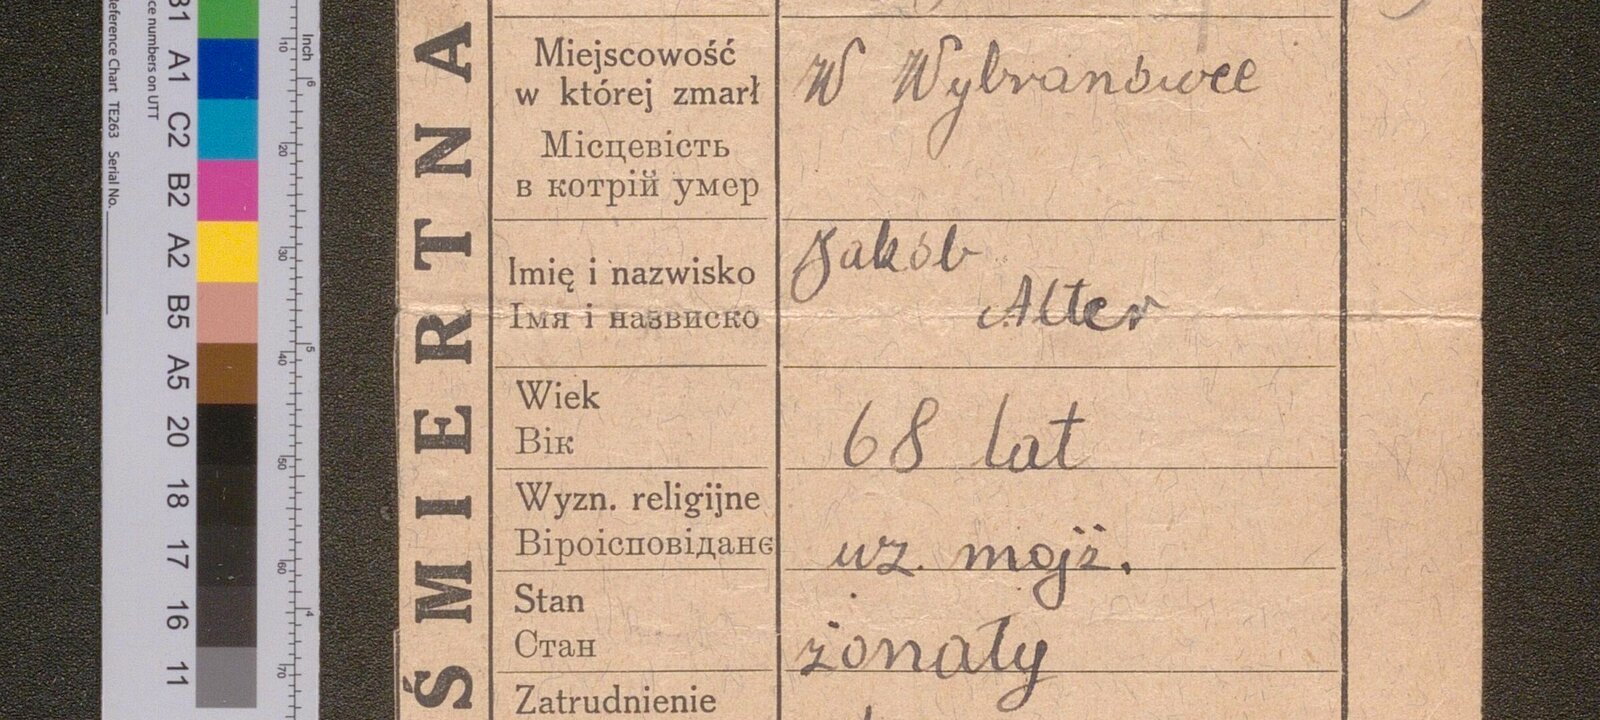 31 A1 C2 B2 A2 B5 A5 20 18 17 16 11
ce numbers on UTT
eference Chart TE263 Serial No.
Inch
6
5
4
10 20 30 40 50 60 70
ŚMIERTNA
Miejscowość
w której zmarł
Місцевість
в котрій умер
W Wybranówce
Imię i nazwisko
Імя і назвиско
Jakób
Alter
Wiek
Вік
68 lat
Wyzn. religijne
Віроісповіданє
wz. mojż.
Stan
Стан
żonaty
Zatrudnienie